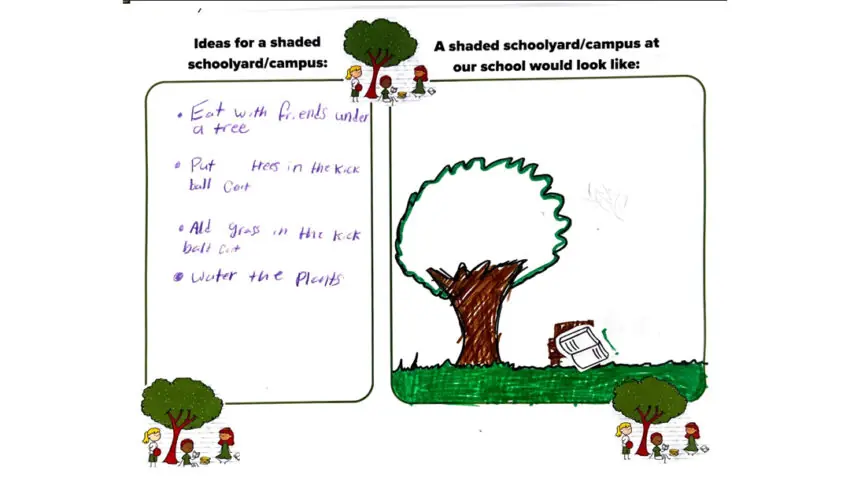 Ideas for a shaded
schoolyard/campus:
• Eat with friends under
a tree
• Put trees in the kick
ball Cort
• Add grass in the kick
ball Cort
• Water the plants
A shaded schoolyard/campus at
our school would look like: